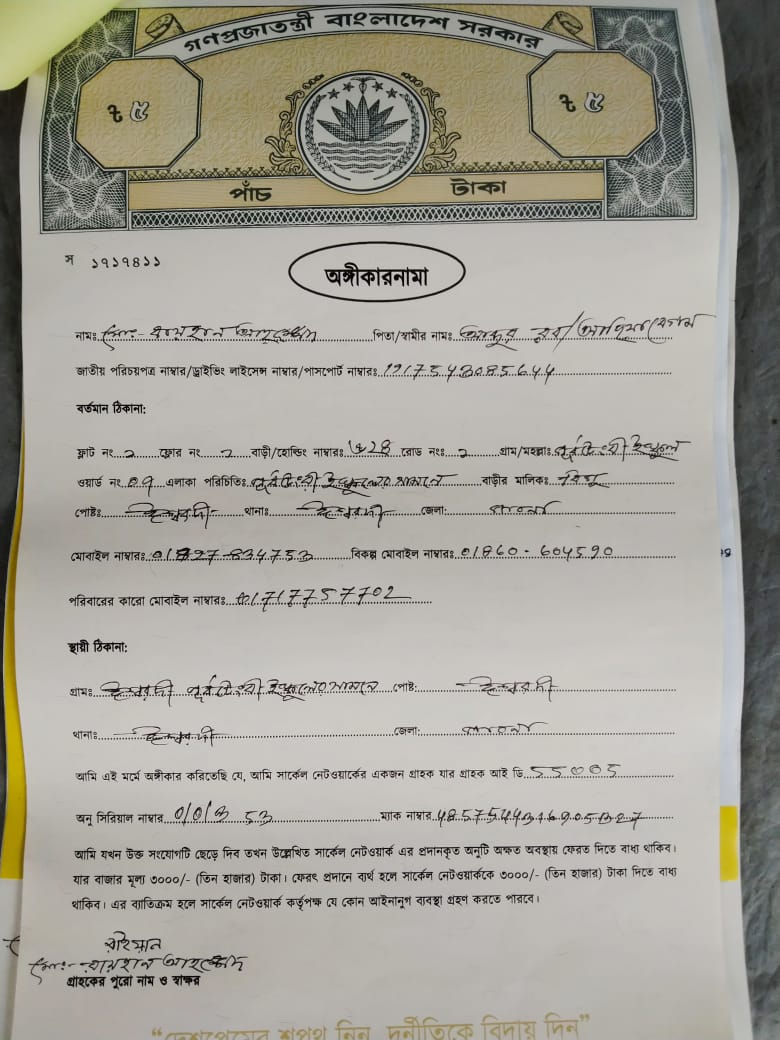 গণপ্রজাতন্ত্রী বাংলাদেশ সরকার
৳ ৫ ৳ ৫
পাঁচ টাকা
স ১৭১৭৪১১
অঙ্গীকারনামা
নামঃ মোঃ- রায়হান আহম্মেদ পিতা/স্বামীর নাম: আব্দুর রব/আছিয়া বেগম
জাতীয় পরিচয়পত্র নাম্বার/ড্রাইভিং লাইসেন্স নাম্বার/পাসপোর্ট নাম্বারঃ
বর্তমান ঠিকানা:
ফ্লাট নং ফ্লোর নং বাড়ী/হোল্ডিং নাম্বারঃ রোড নংঃ গ্রাম/মহল্লাঃ
ওয়ার্ড নং 09 এলাকা পরিচিতিঃ সামনে বাড়ীর মালিকঃ
পোষ্টঃ ঈশ্বরদী থানাঃ ঈশ্বরদী জেলা: পাবনা
মোবাইল নাম্বারঃ বিকল্প মোবাইল নাম্বারঃ 01860-604590
পরিবারের কারো মোবাইল নাম্বারঃ 01717757702
স্থায়ী ঠিকানা:
গ্রামঃ ঈশ্বরদী সামনে পোষ্ট: ঈশ্বরদী
থানাঃ ঈশ্বরদী জেলা: পাবনা
আমি এই মর্মে অঙ্গীকার করিতেছি যে, আমি সার্কেল নেটওয়ার্কের একজন গ্রাহক যার গ্রাহক আই ডি 55005
অনু সিরিয়াল নাম্বার ম্যাক নাম্বার
আমি যখন উক্ত সংযোগটি ছেড়ে দিব তখন উল্লেখিত সার্কেল নেটওয়ার্ক এর প্রদানকৃত অনুটি অক্ষত অবস্থায় ফেরত দিতে বাধ্য থাকিব।
যার বাজার মূল্য ৩০০০/- (তিন হাজার) টাকা। ফেরৎ প্রদানে ব্যর্থ হলে সার্কেল নেটওয়ার্ককে ৩০০০/- (তিন হাজার) টাকা দিতে বাধ্য
থাকিব। এর ব্যতিক্রম হলে সার্কেল নেটওয়ার্ক কর্তৃপক্ষ যে কোন আইনানুগ ব্যবস্থা গ্রহণ করতে পারবে।
রাইয়ান
মোঃ- রায়হান আহম্মেদ
গ্রাহকের পুরো নাম ও স্বাক্ষর
“দেশপ্রেমের শপথ নিন, দুর্নীতিকে বিদায় দিন”